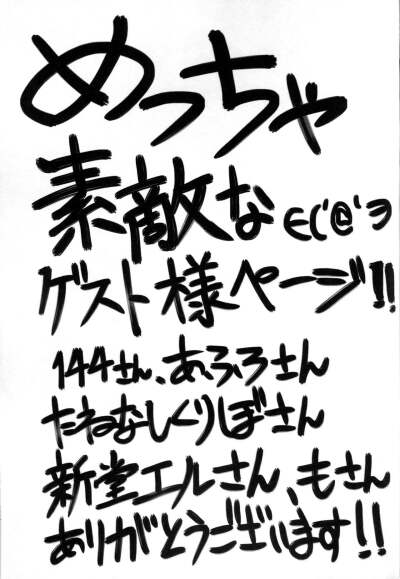 めっちゃ
素敵な ∈(´@｀ヨ
ゲスト様ページ!!
144さん、あふろさん
たねなしくりぼさん
新堂エルさん、もさん
ありがとうございます!!